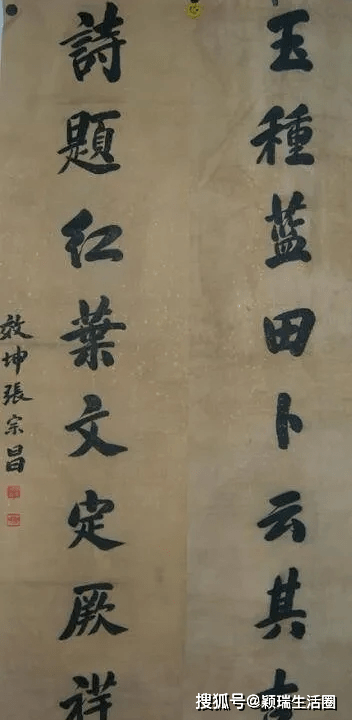 玉種蓝田卜云其吉
詩題红葉文定厥祥
效坤張宗昌
搜狐号@颖瑞生活圈